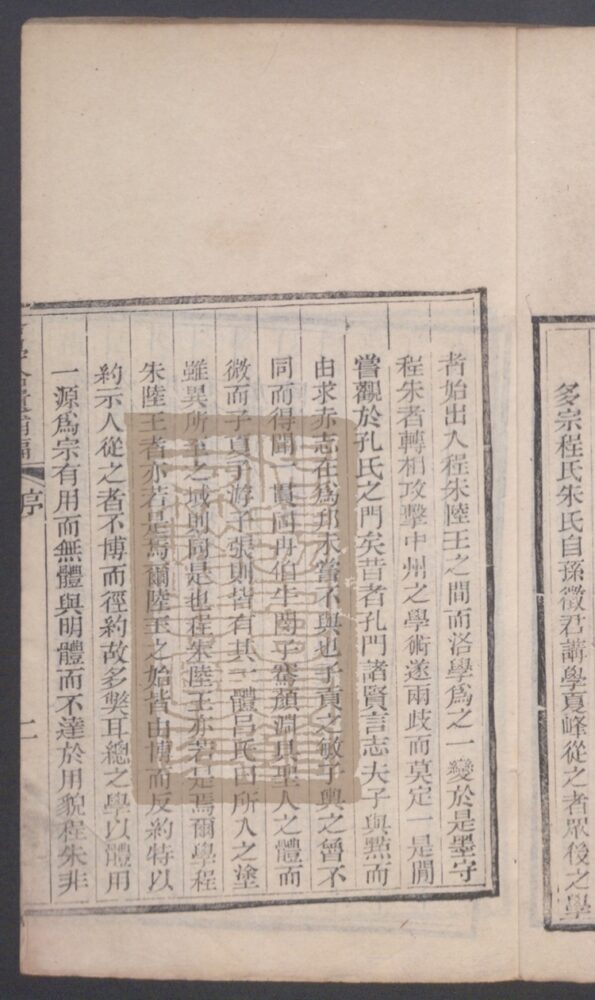 多宗程氏朱氏自孫徵君講學夏峰從之者眾後之學
者始出入程朱陸王之間而洛學為之一變於是墨守
程朱者轉相攻擊中州之學術遂兩歧而莫定一是閒
嘗觀於孔氏之門矣昔者孔門諸賢言志夫子與點而
由求赤志在為邦未嘗不與也子貢之敏子輿之魯不
同而得聞一貫而冉伯牛閔子騫顏淵具聖人之體而
微而子夏子游子張則皆有其一體呂氏由所入之塗
雖異所至之域則同是也程朱陸王亦若是焉爾學程
朱陸王者亦若是焉爾陸王之始皆由博而反約特以
約示人從之者不博而徑約故多獘耳總之學以體用
一源為宗有用而無體與明體而不達於用貌程朱非
序
二